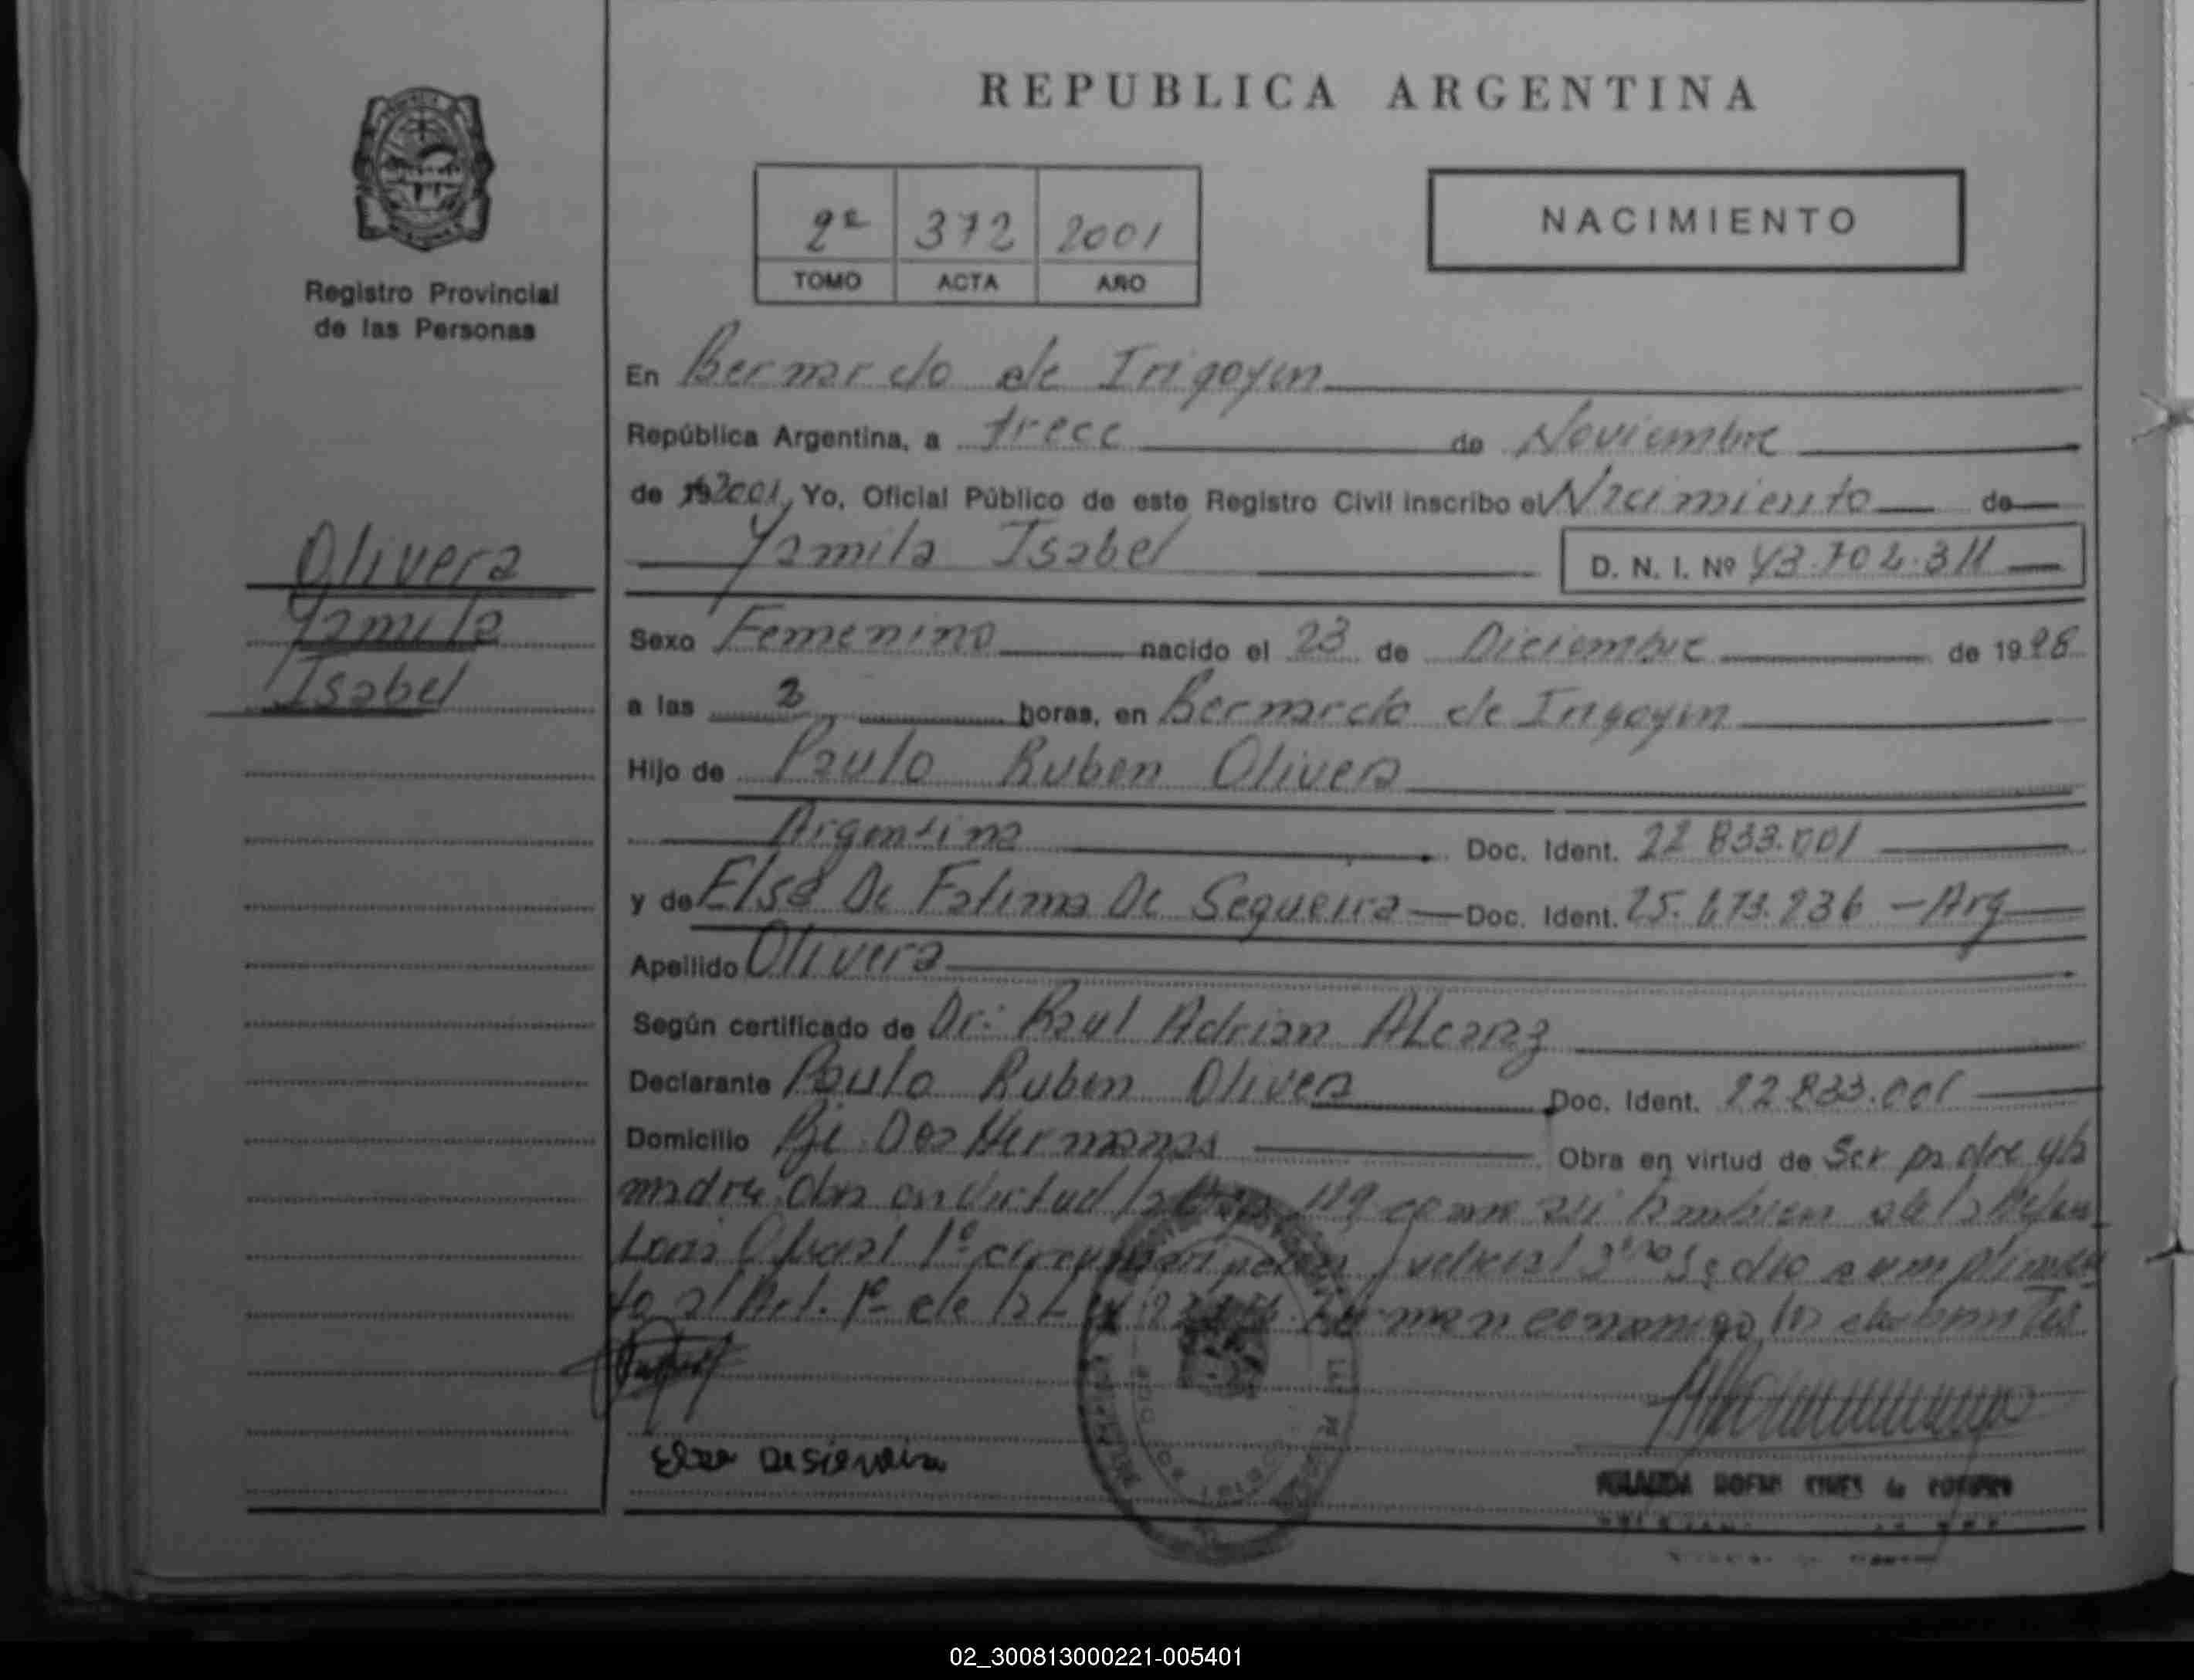 REPUBLICA ARGENTINA
2º 372 2001
TOMO ACTA AÑO
NACIMIENTO
Registro Provincial
de las Personas
Olivera
Yamila
Isabel
En Bernardo de Irigoyen
República Argentina, a trece de Noviembre
de 192001, Yo, Oficial Público de este Registro Civil inscribo el Nacimiento de
Yamila Isabel D. N. I. Nº 43.702.311
Sexo Femenino nacido el 23 de Diciembre de 1998
a las 3 horas, en Bernardo de Irigoyen
Hijo de Paulo Ruben Olivera
Argentina Doc. Ident. 22.833.001
y de Elsa De Fatima De Sequeira Doc. Ident. 25.673.236 - Arg
Apellido Olivera
Según certificado de Dr: Raul Adrian Alcaraz
Declarante Paulo Ruben Olivera Doc. Ident. 22.833.001
Domicilio Pje Dos Hermanas Obra en virtud de Ser padre y la
madre obra en virtud como asi tambien de la
Oficial 1º Judicial 3ra Se dio cumplimien
to al Art. 1º de la Ley Firman conmigo los
Elsa
02_300813000221-005401